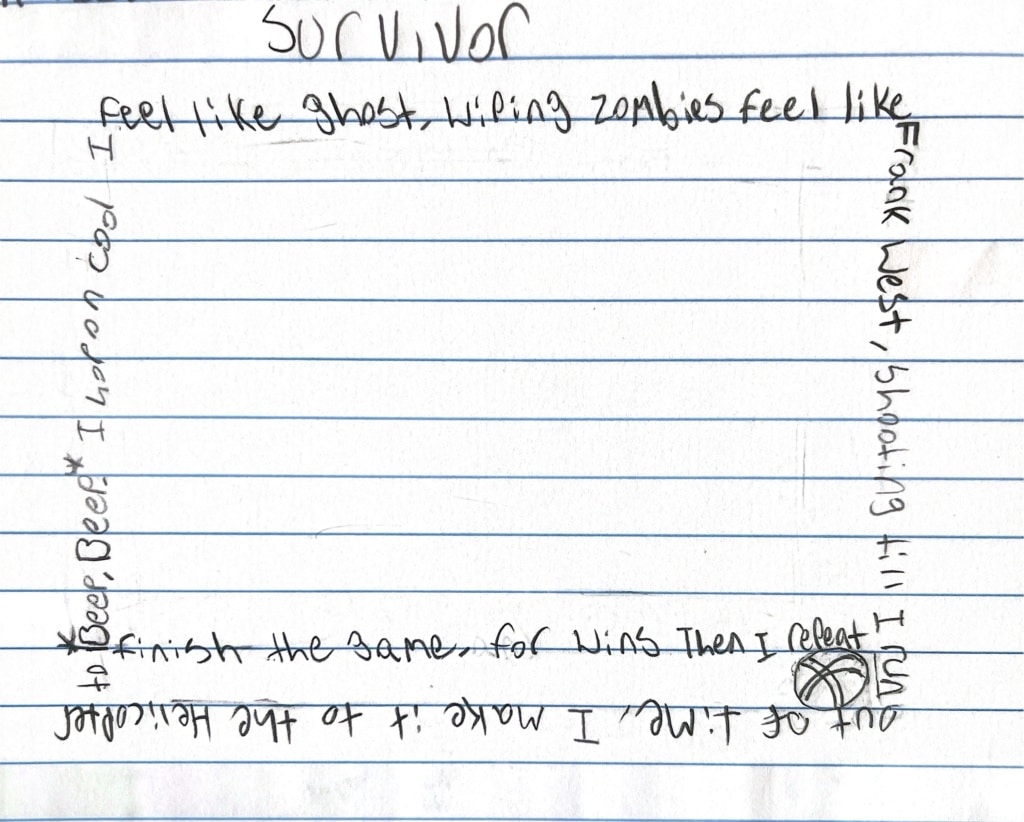 Survivor
Feel like ghost, Wiping zombies feel like
Frank West, shooting till I run
out of time, I make it to the Helicopter
to *Beep, Beep.* I hop on cod I
finish the game, for wins Then I repeat